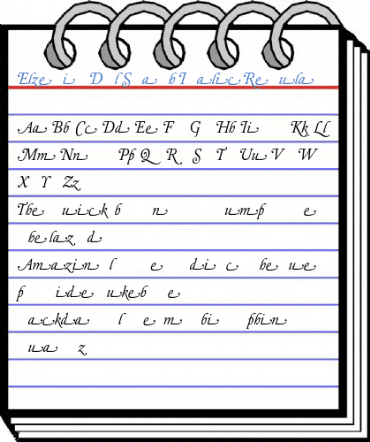 Elze i D lS a bI alic Re ula
Aa Bb Cc Dd Ee F G Hh Ii Kk Ll
Mm Nn Pp Q R S T Uu V W
X Y Zz
The uick b n ump e
he laz d
Amazin l e di c he ue
p ide uke b e
ackda l e m bi phin
ua z